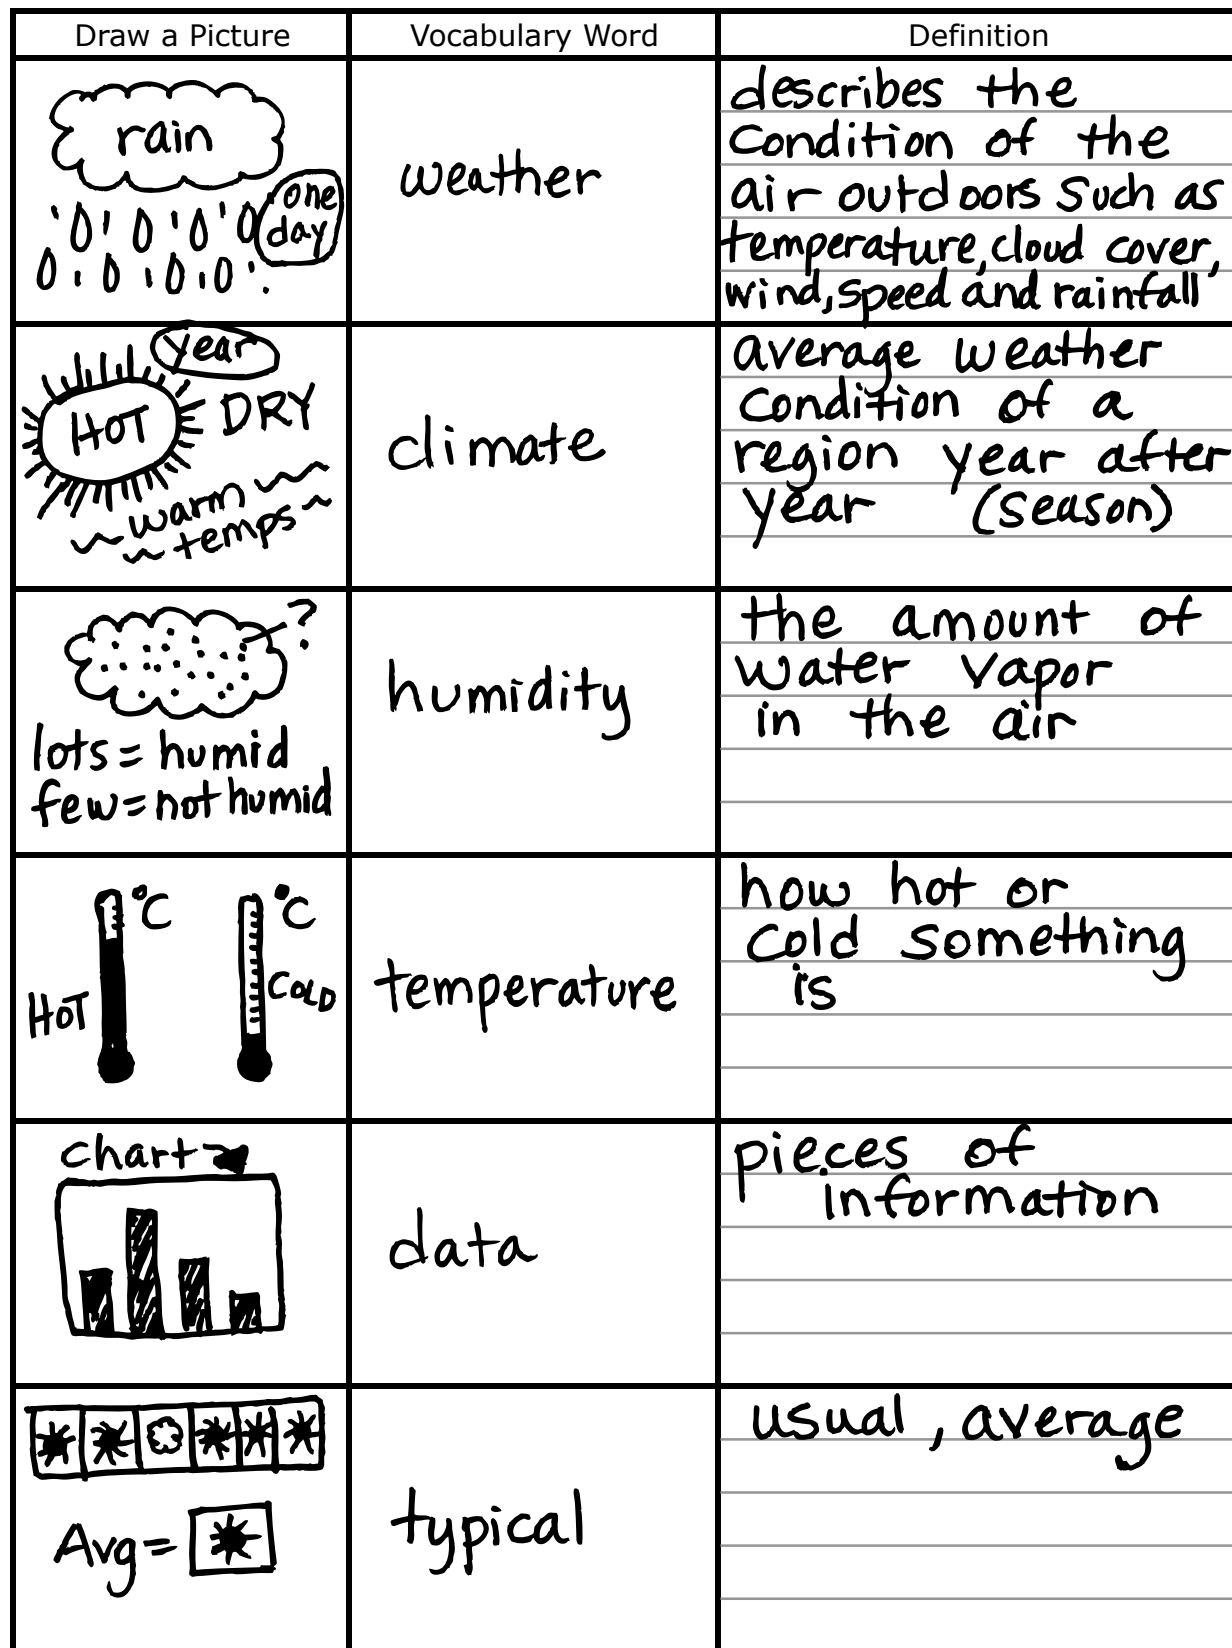 Draw a Picture
Vocabulary Word
Definition
rain
one
day
weather
describes the
Condition of the
air outdoors such as
temperature, cloud cover,
wind, speed and rainfall
year
HOT
DRY
warm
temps
climate
average weather
Condition of a
region year after
year (season)
?
lots = humid
few = not humid
humidity
the amount of
water vapor
in the air
°C
°C
HOT
COLD
temperature
how hot or
cold something
is
chart
data
pieces of
information
Avg =
typical
usual, average